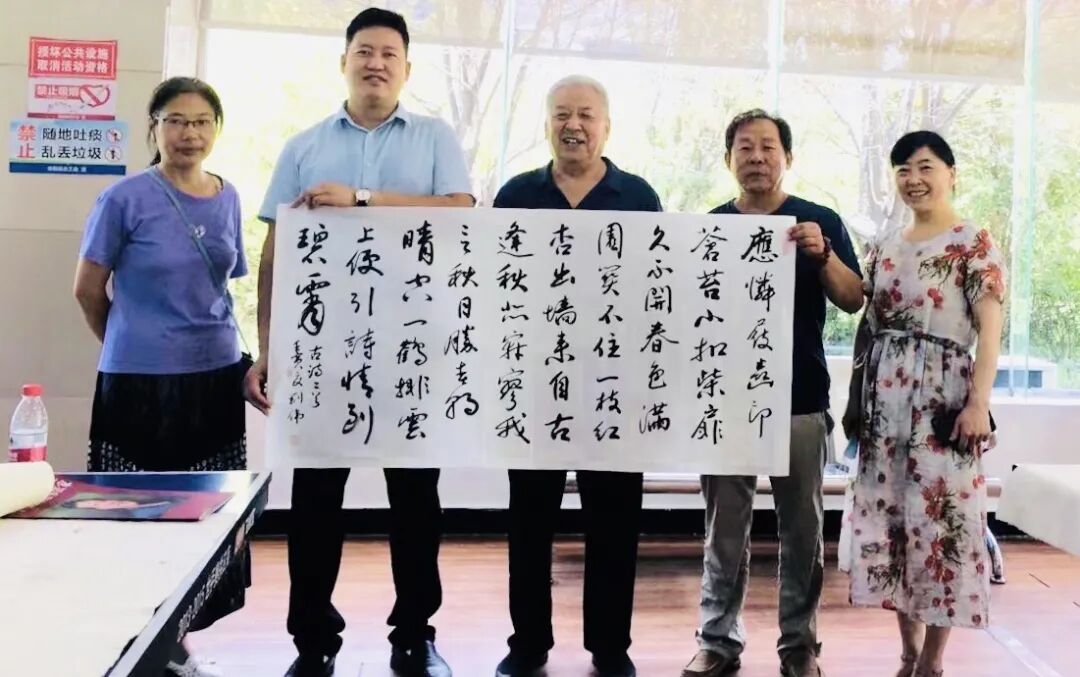 损坏公共设施
取消活动资格
禁止吸烟
禁止
随地吐痰
乱丢垃圾
應憐屐齒印
蒼苔小扣柴扉
久不開春色滿
園関不住一枝紅
杏出墙来自古
逢秋悲寂寥我
言秋日勝春朝
晴空一鶴排雲
上便引詩情到
碧霄
古詩二首